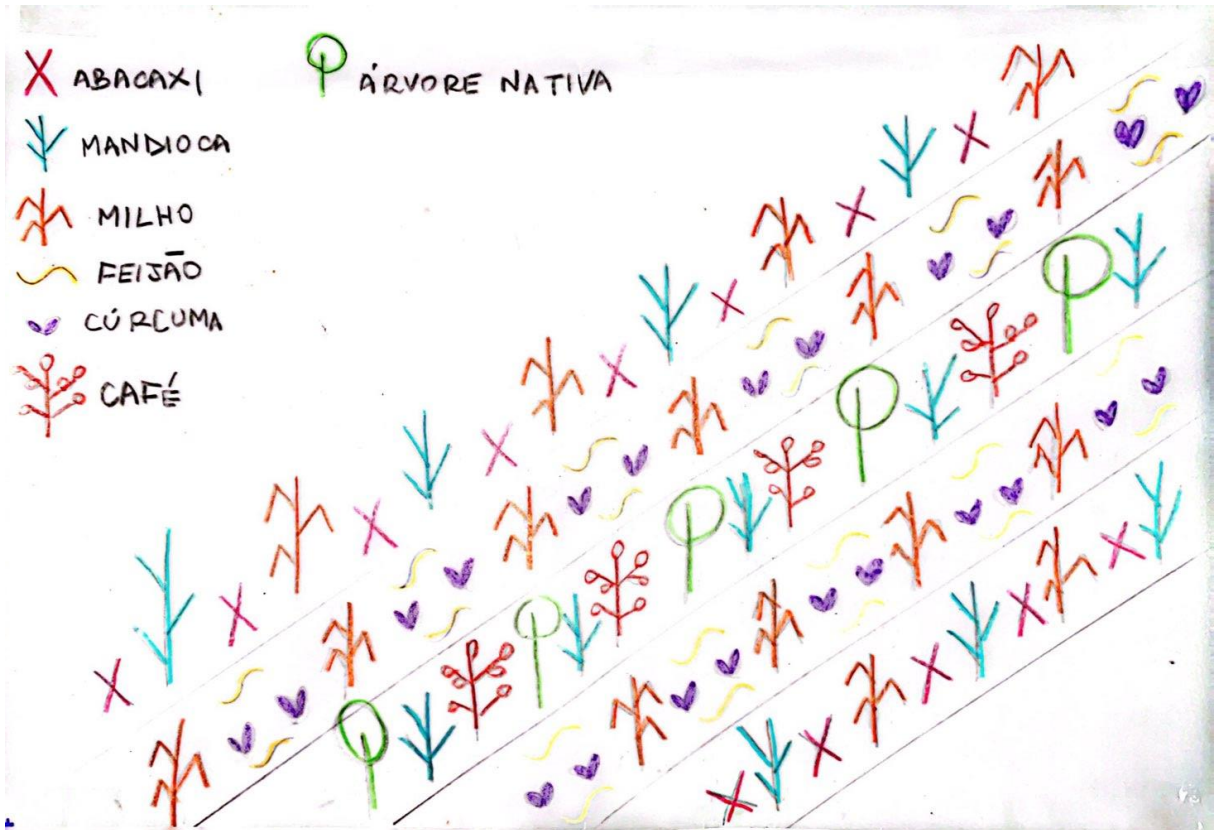 ABACAXI
MANDIOCA
MILHO
FEIJÃO
CÚRCUMA
CAFÉ
ÁRVORE NATIVA